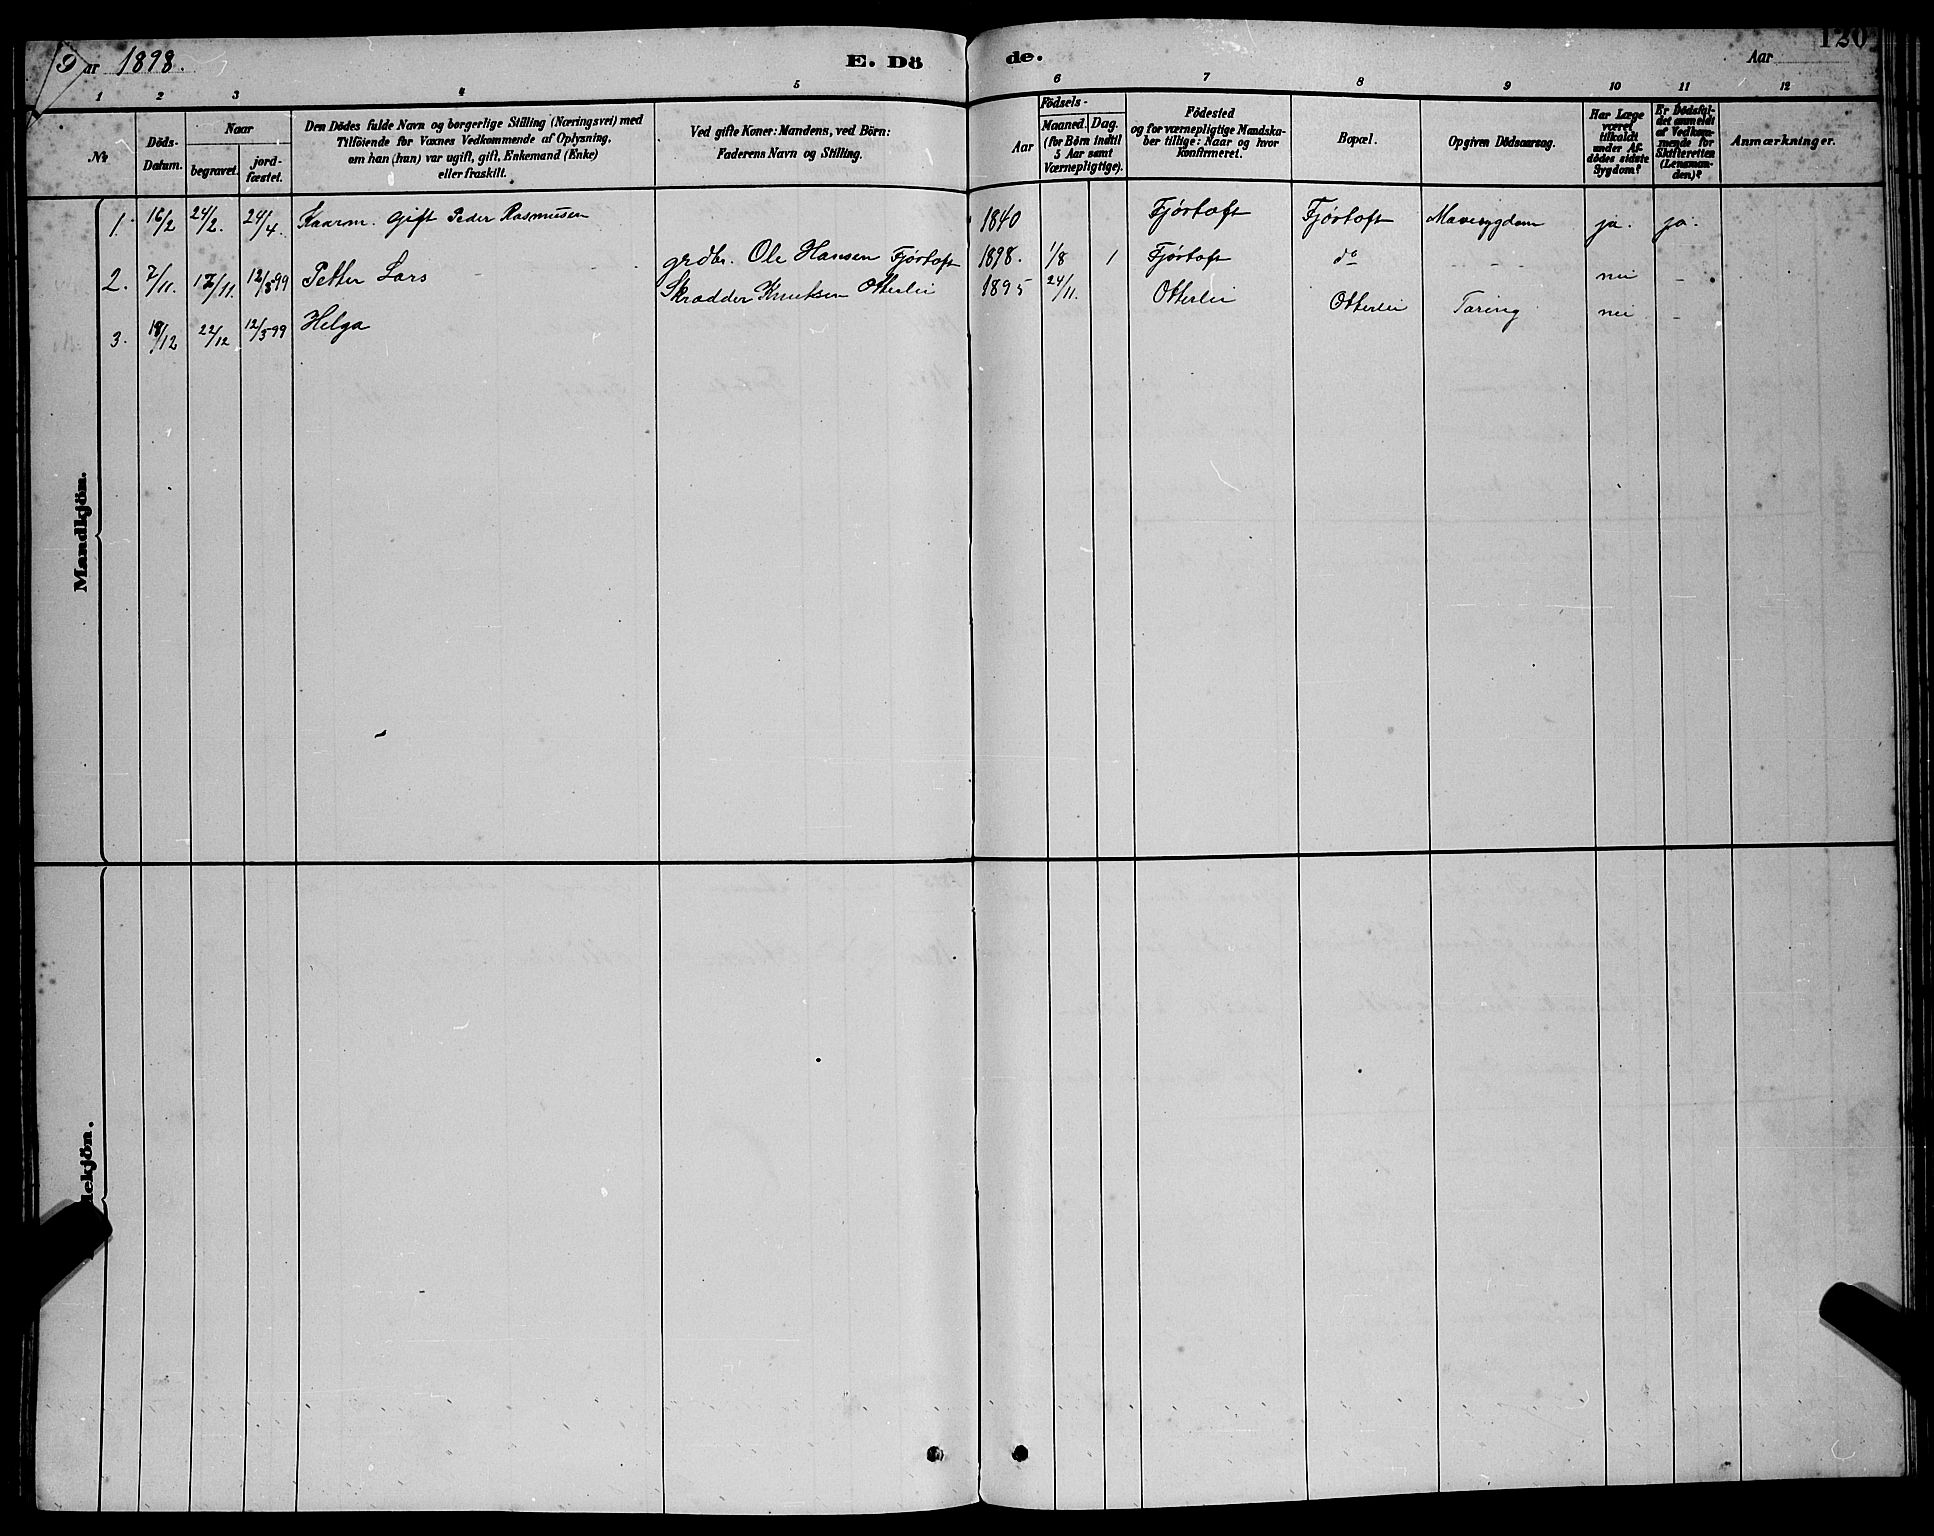 Aar 1898.
E. Dö
de.
Aar
120
1 2 3 4 5 6 7 8 9 10 11 12
No
Döds-Datum.
Naar
begravet.
jord-fæstet.
Den Dödes fulde Navn og borgerlige Stilling (Næringsvei) med
Tilföiende for Voxnes Vedkommende af Oplysning,
om han (hun) var ugift, gift, Enkemand (Enke)
eller fraskilt.
Ved gifte Koner: Mandens, ved Börn:
Faderens Navn og Stilling.
Födsels-
Aar
Maaned. Dag.
(for Börn indtil
5 Aar samt
Værnepligtige).
Födested
og for værnepligtige Mandska-
ber tillige: Naar og hvor
konfirmeret.
Bopæl.
Opgiven Dödsaarsag.
Har Læge
været
tilkaldt
under Af-
dödes sidste
Sygdom?
Er Dödsfal-
det anmeldt
af Vedkom-
mende for
Skifteretten
(Lensman-
den)?
Anmærkninger.
Mandkjön.
1. 16/2 24/2. 24/4. Kaarm. gift Peder Rasmusen 1840 Fjörtoft Fjörtoft Mavesygdom ja. ja.
2. 7/11. 12/11. 12/5-99 Petter Lars grdbr. Ole Hansen Fjörtoft 1898. 1/8 1 Fjörtoft do - - - nei
3. 18/12 22/12 12/5-99 Helga Skrædder Knutsen Otterlei 1895 24/11. Otterlei Otterlei Taring nei -
dekjön.